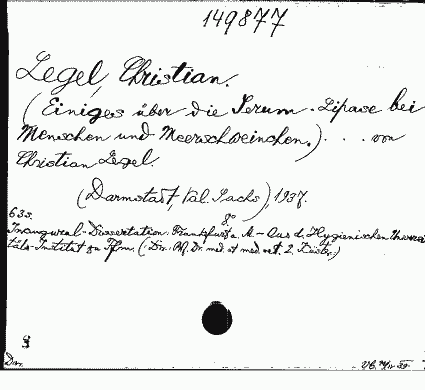 149877
Legel, Christian.
(Einiges über die Serum-Lipase bei
Menschen und Meerschweinchen.) . . . von
Christian Legel.
(Darmstadt, Sachs), 1937.
63 s. 8°
Inaugural-Dissertation. Frankfurt a. M - Aus d. Hygienischen Universi
täts-Institut zu Ffm. (Dir. Dr. med. et med. vet.